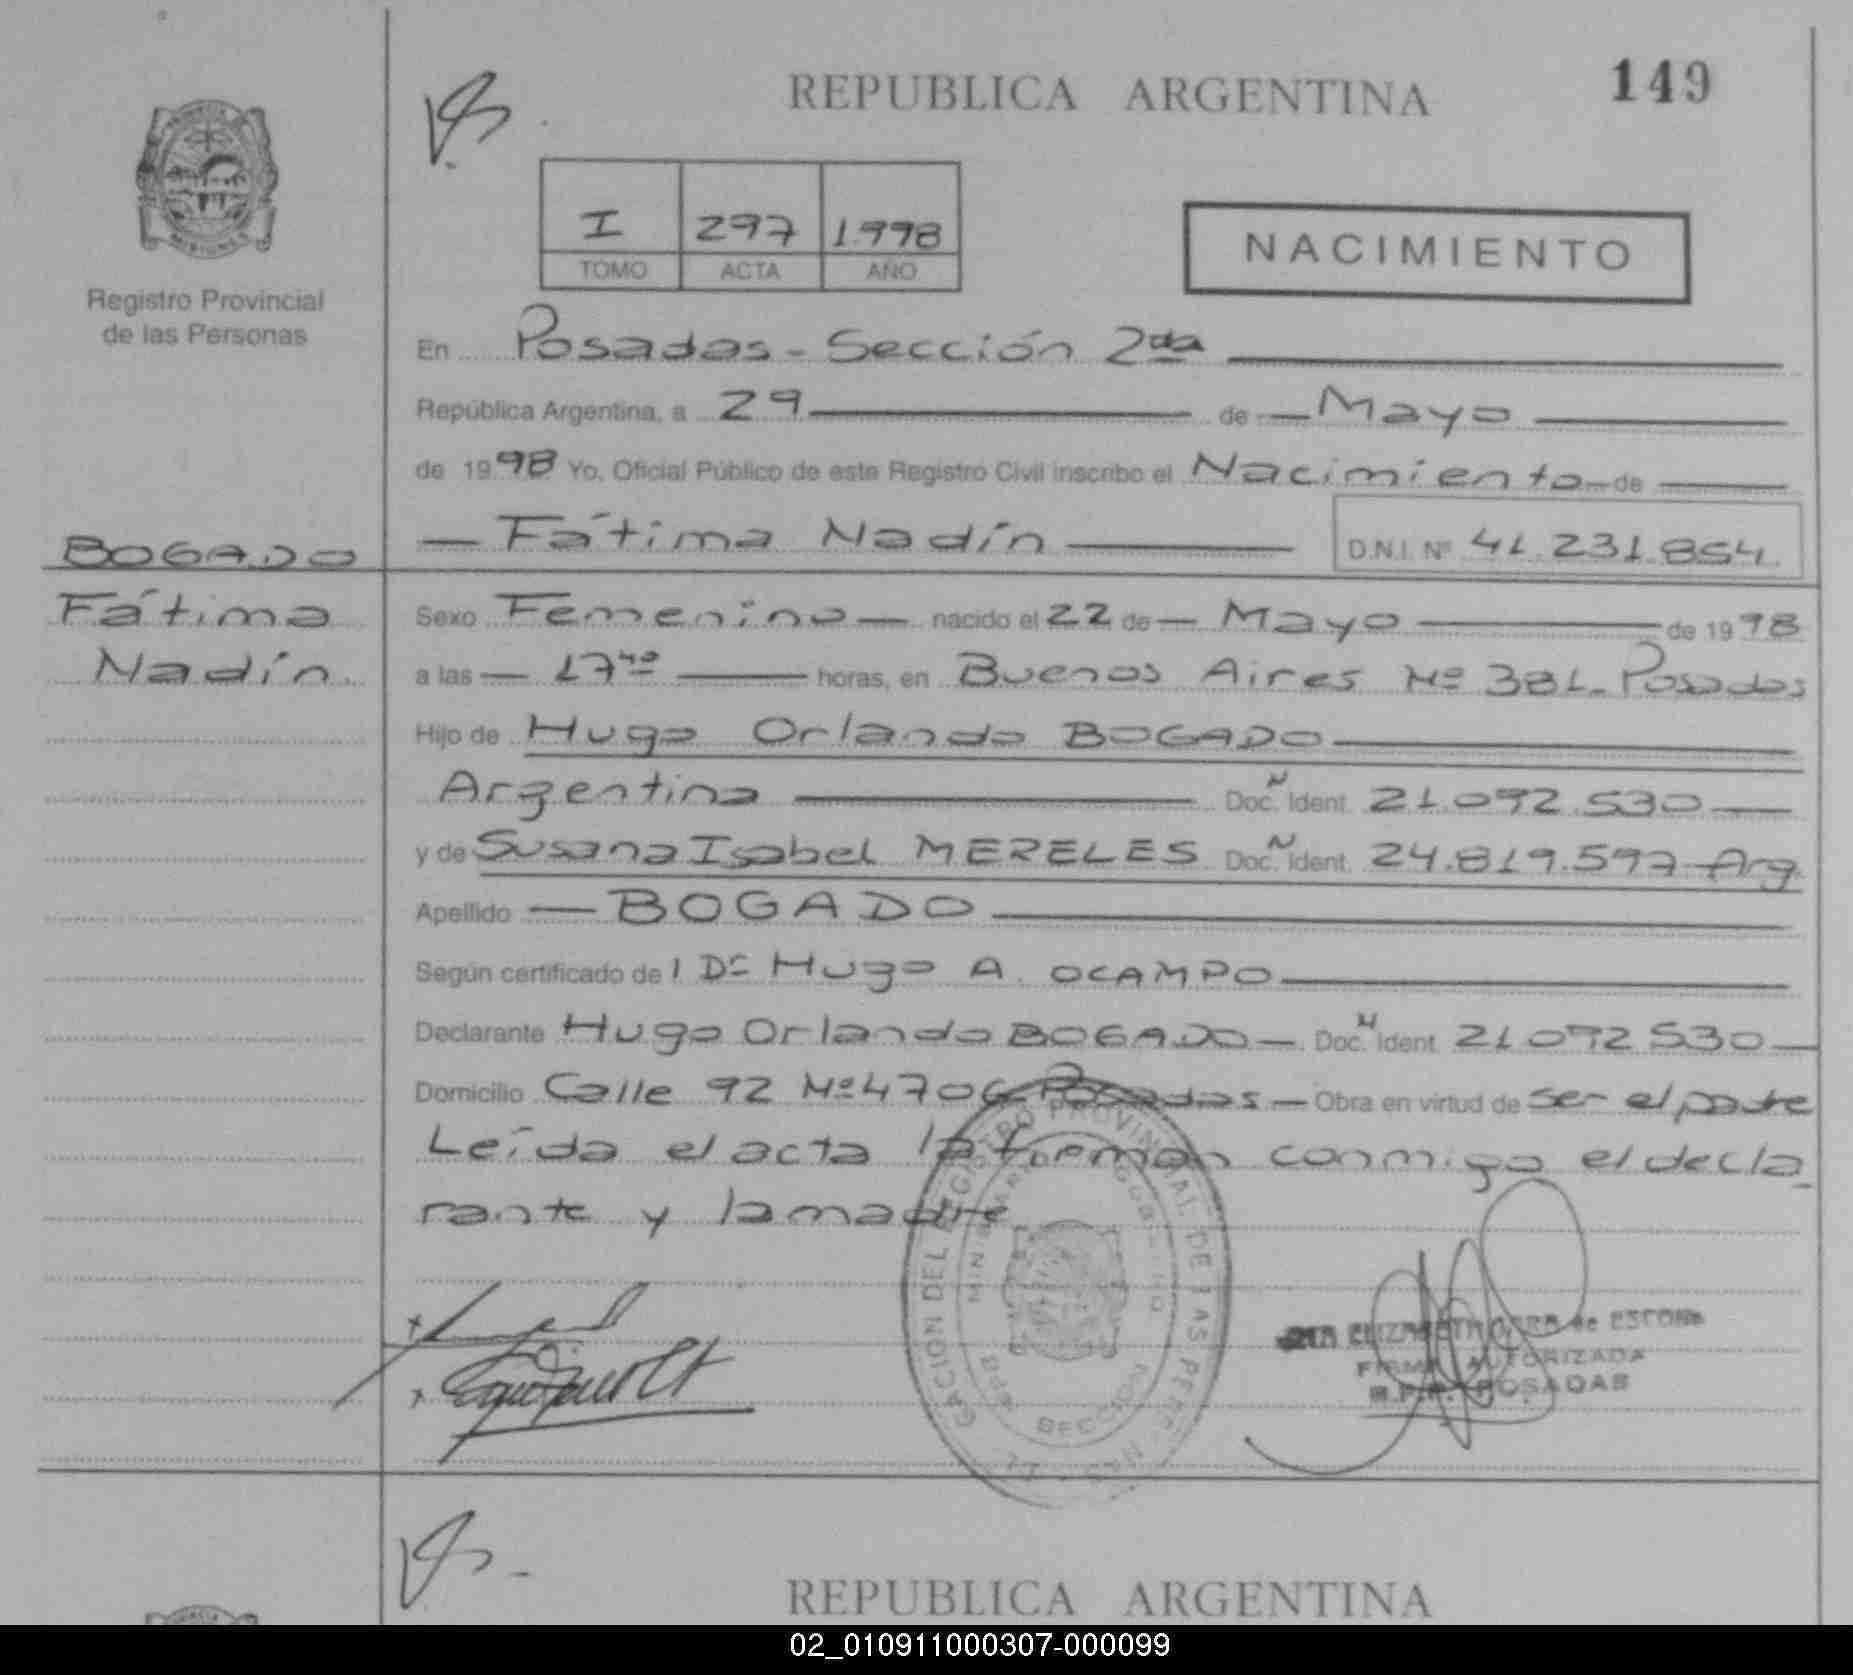 REPUBLICA ARGENTINA
149
I 297 1.998
TOMO ACTA AÑO
NACIMIENTO
MISIONES
Registro Provincial
de las Personas
En Posadas - Sección 2da
República Argentina, a 29 de Mayo
de 1998 Yo, Oficial Público de este Registro Civil inscribo el Nacimiento de
Fátima Nadín D.N.I. Nº 41.231.854
BOGADO
Fátima
Nadín.
Sexo Femenino nacido el 22 de Mayo de 1998
a las 17 40 horas, en Buenos Aires Nº 381 - Posadas
Hijo de Hugo Orlando BOGADO
Argentina Doc. N Ident. 21.092.530
y de Susana Isabel MERELES Doc. N Ident. 24.819.597 Arg.
Apellido BOGADO
Según certificado de 1 Dr Hugo A. OCAMPO
Declarante Hugo Orlando BOGADO Doc. N Ident. 21 092 530
Domicilio Calle 92 Nº 4706 Posadas Obra en virtud de ser el padre
Leída el acta la firman conmigo el decla
rante y la madre
DEL REGISTRO PROVINCIAL DE LAS PERS
SECCION
ELIZABETH de ESCOBAR
FIRMA AUTORIZADA
R.P.P. POSADAS
REPUBLICA ARGENTINA
02_010911000307-000099